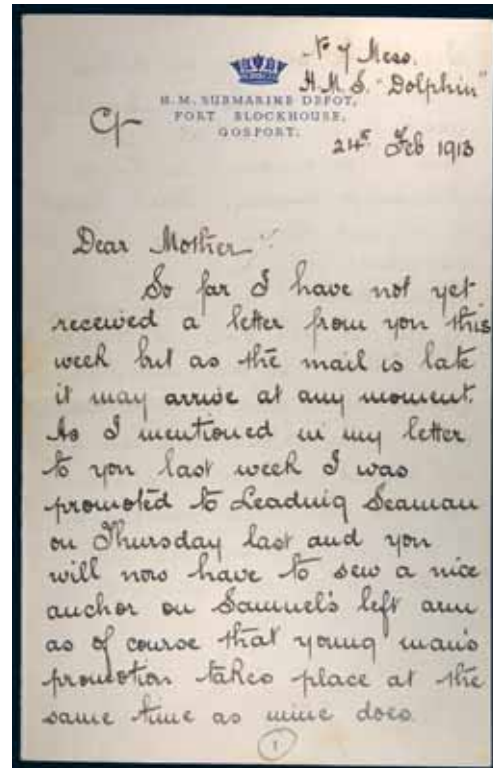 Nº 7 Mess.
H.M.S. "Dolphin"
H.M. SUBMARINE DEPOT,
FORT BLOCKHOUSE,
GOSPORT.
24th Feb 1913
Dear Mother
So far I have not yet
received a letter from you this
week but as the mail is late
it may arrive at any moment.
As I mentioned in my letter
to you last week I was
promoted to Leading Seaman
on Thursday last and you
will now have to sew a nice
anchor on Samuel's left arm
as of course that young man's
promotion takes place at the
same time as mine does
1